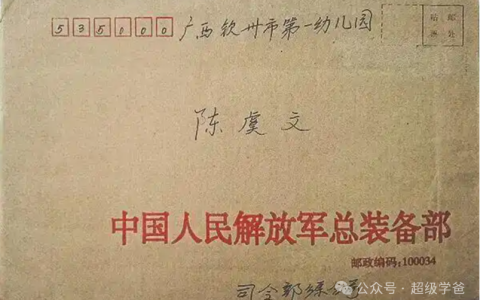 535000 广西钦州市第一幼儿园
贴邮
票处
陈虞文
中国人民解放军总装备部
邮政编码:100034
司令部综合
公众号·超级学爸